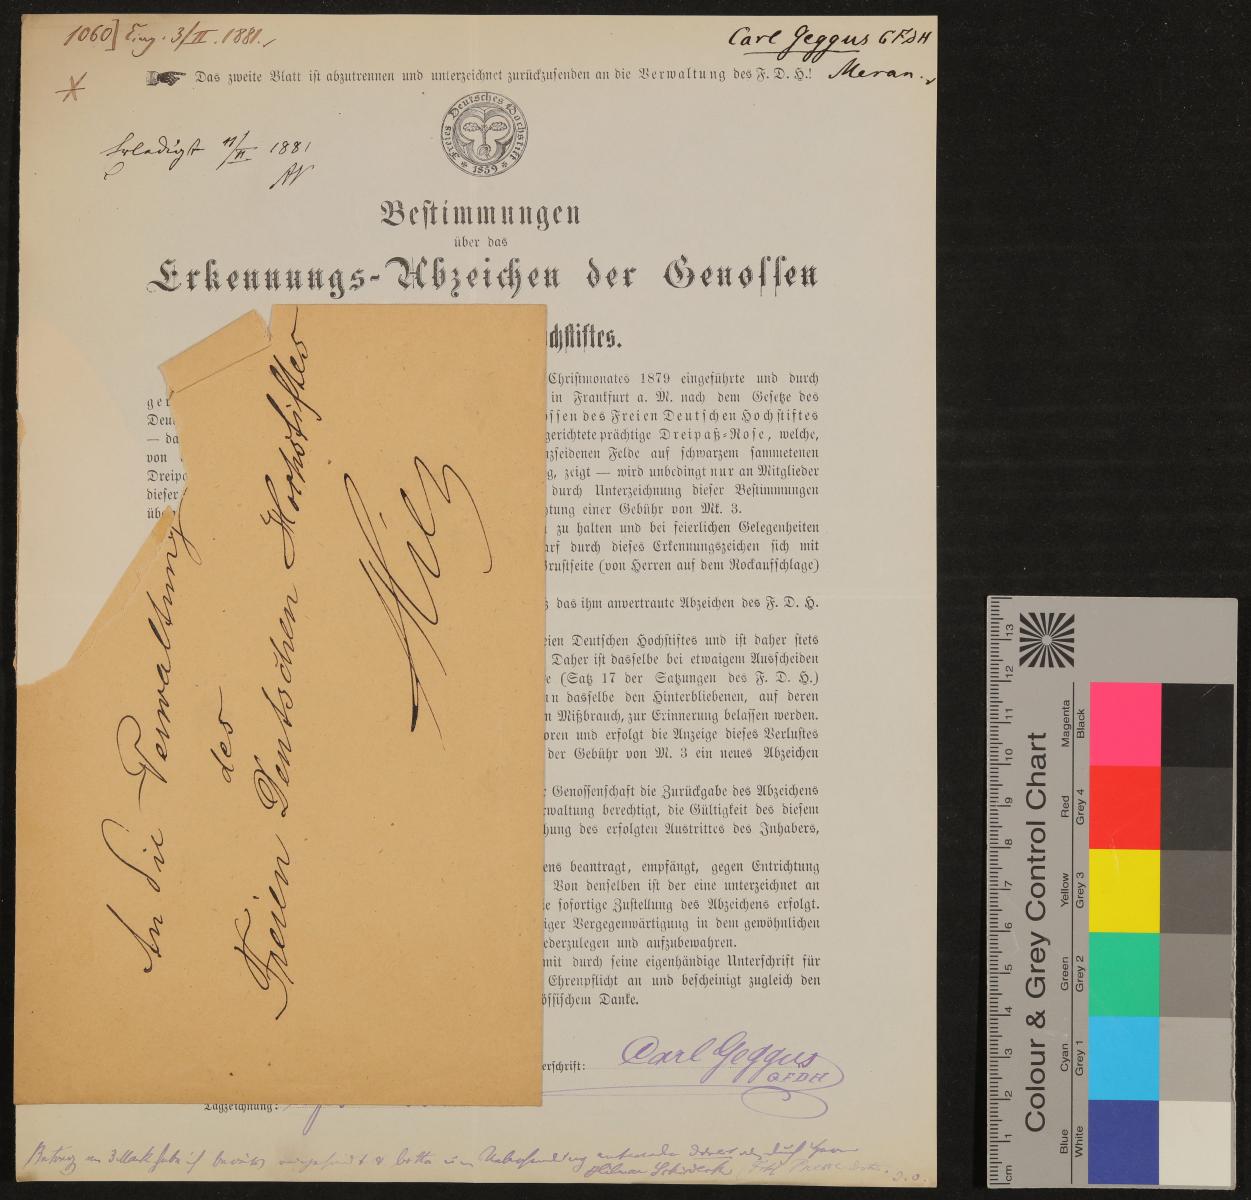 1060] Eing. 3/II. 1881.
Carl Geggus GFDH
Meran.
Das zweite Blatt ist abzutrennen und unterzeichnet zurückzusenden an die Verwaltung des F. D. H.!
Freies Deutsches Hochstift
* 1859 *
Erledigt 11/II 1881
Bestimmungen
über das
Erkennungs-Abzeichen der Genossen
chstiftes.
Christmonates 1879 eingeführte und durch
ger
in Frankfurt a. M. nach dem Gesetze des
Deu
ssen des Freien Deutschen Hochstiftes
— da
gerichtete prächtige Dreipaß-Rose, welche,
von
nzseidenen Felde auf schwarzem sammetenen
Dreipa
g, zeigt — wird unbedingt nur an Mitglieder
dieser
durch Unterzeichnung dieser Bestimmungen
üb
htung einer Gebühr von Mk. 3.
zu halten und bei feierlichen Gelegenheiten
arf durch dieses Erkennungszeichen sich mit
Brustseite (von Herren auf dem Rockaufschlage)
das ihm anvertraute Abzeichen des F. D. H.
eien Deutschen Hochstiftes und ist daher stets
Daher ist dasselbe bei etwaigem Ausscheiden
e (Satz 17 der Satzungen des F. D. H.)
nn dasselbe den Hinterbliebenen, auf deren
n Mißbrauch, zur Erinnerung belassen werden.
oren und erfolgt die Anzeige dieses Verlustes
der Gebühr von M. 3 ein neues Abzeichen
Genossenschaft die Zurückgabe des Abzeichens
rwaltung berechtigt, die Gültigkeit des diesem
hung des erfolgten Austrittes des Inhabers,
ens beantragt, empfängt, gegen Entrichtung
Von denselben ist der eine unterzeichnet an
ie sofortige Zustellung des Abzeichens erfolgt.
iger Vergegenwärtigung in dem gewöhnlichen
ederzulegen und aufzubewahren.
mit durch seine eigenhändige Unterschrift für
Ehrenpflicht an und bescheinigt zugleich den
össischem Danke.
erschrift: Carl Geggus
GFDH
Tagzeichnung:
An die Verwaltung
des
Freien Deutschen Hochstiftes
Hilz
Betrag von 3 Mark habe ich bereits eingesandt & bitte um Uebersendung entweder direct oder durch Herrn
Colour & Grey Control Chart
Blue Cyan Green Yellow Red Magenta
White Grey 1 Grey 2 Grey 3 Grey 4 Black
cm 1 2 3 4 5 6 7 8 9 10 11 12 13